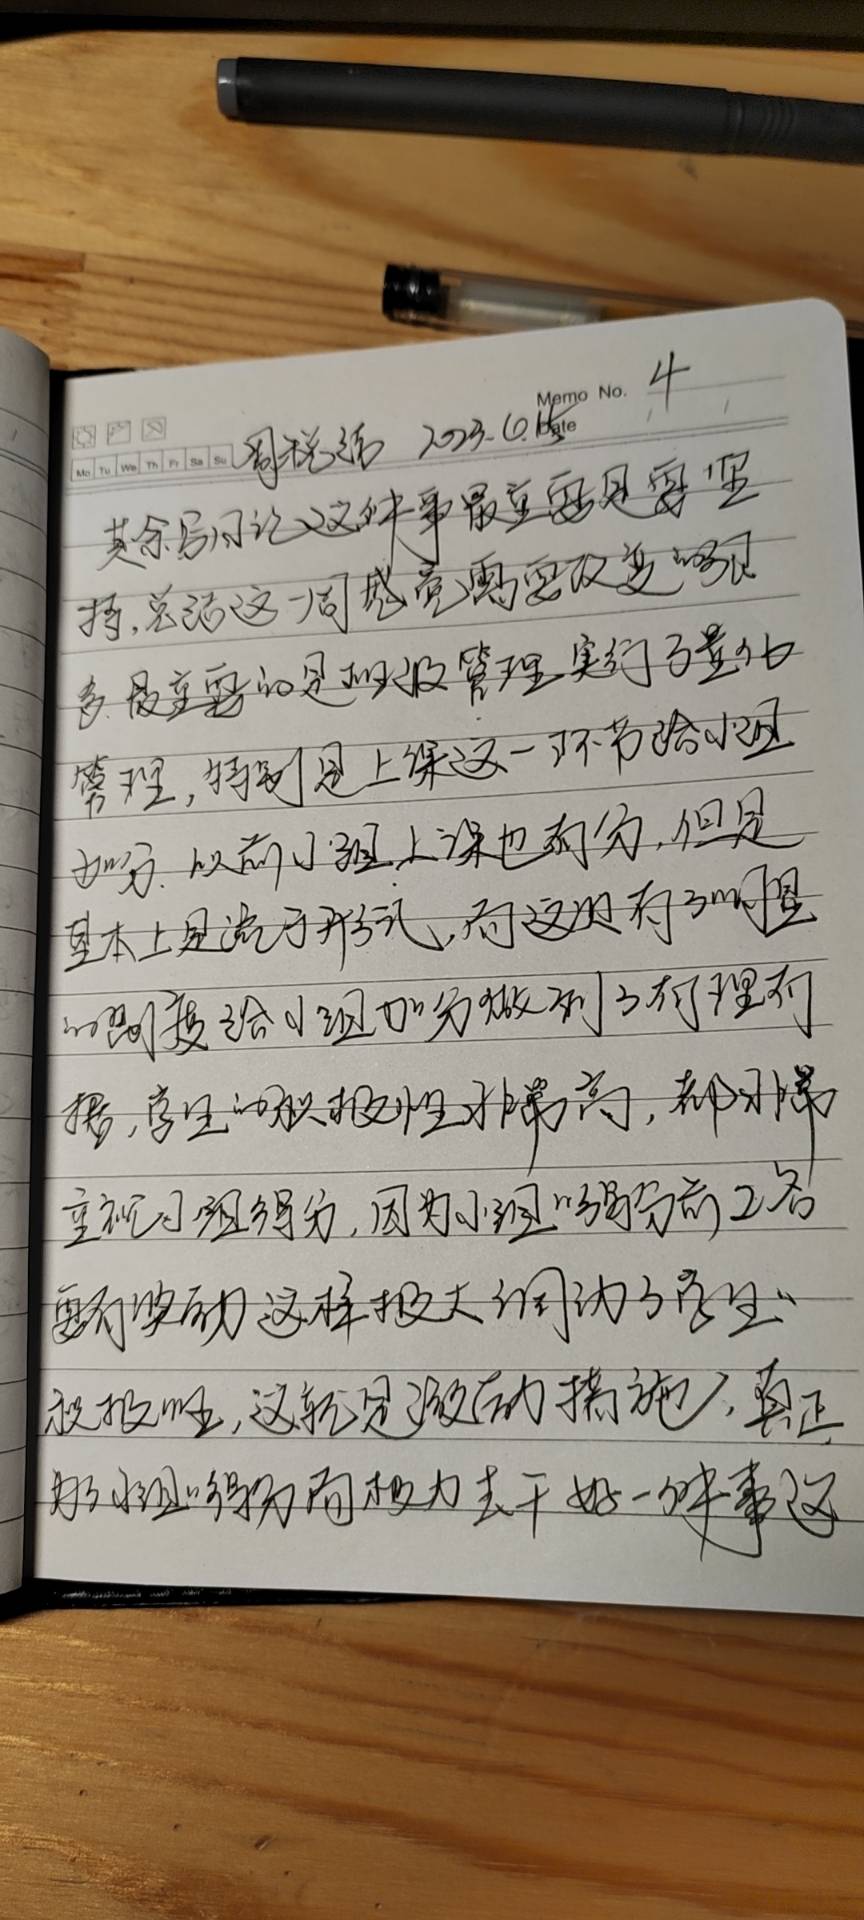 Memo No. 4
Mo Tu We Th Fr Sa Su
Date
周总结 2023.6.15
其余写周记这件事最重要是要坚
持,总结这一周感觉需要改变的很
多.最重要的是班级管理实行了量化
管理,特别是上课这一环节给小组
加分.以前小组上课也有分,但是
基本上是流于形式,而这次有了明显
的制度给小组加分做到了有理有
据,学生的积极性非常高,都非常
重视小组得分,因为小组的得分前2名
要有奖励 这样极大调动了学生的
积极性,这就是激励措施,真正
为了小组的得分而极力去干好一件事这